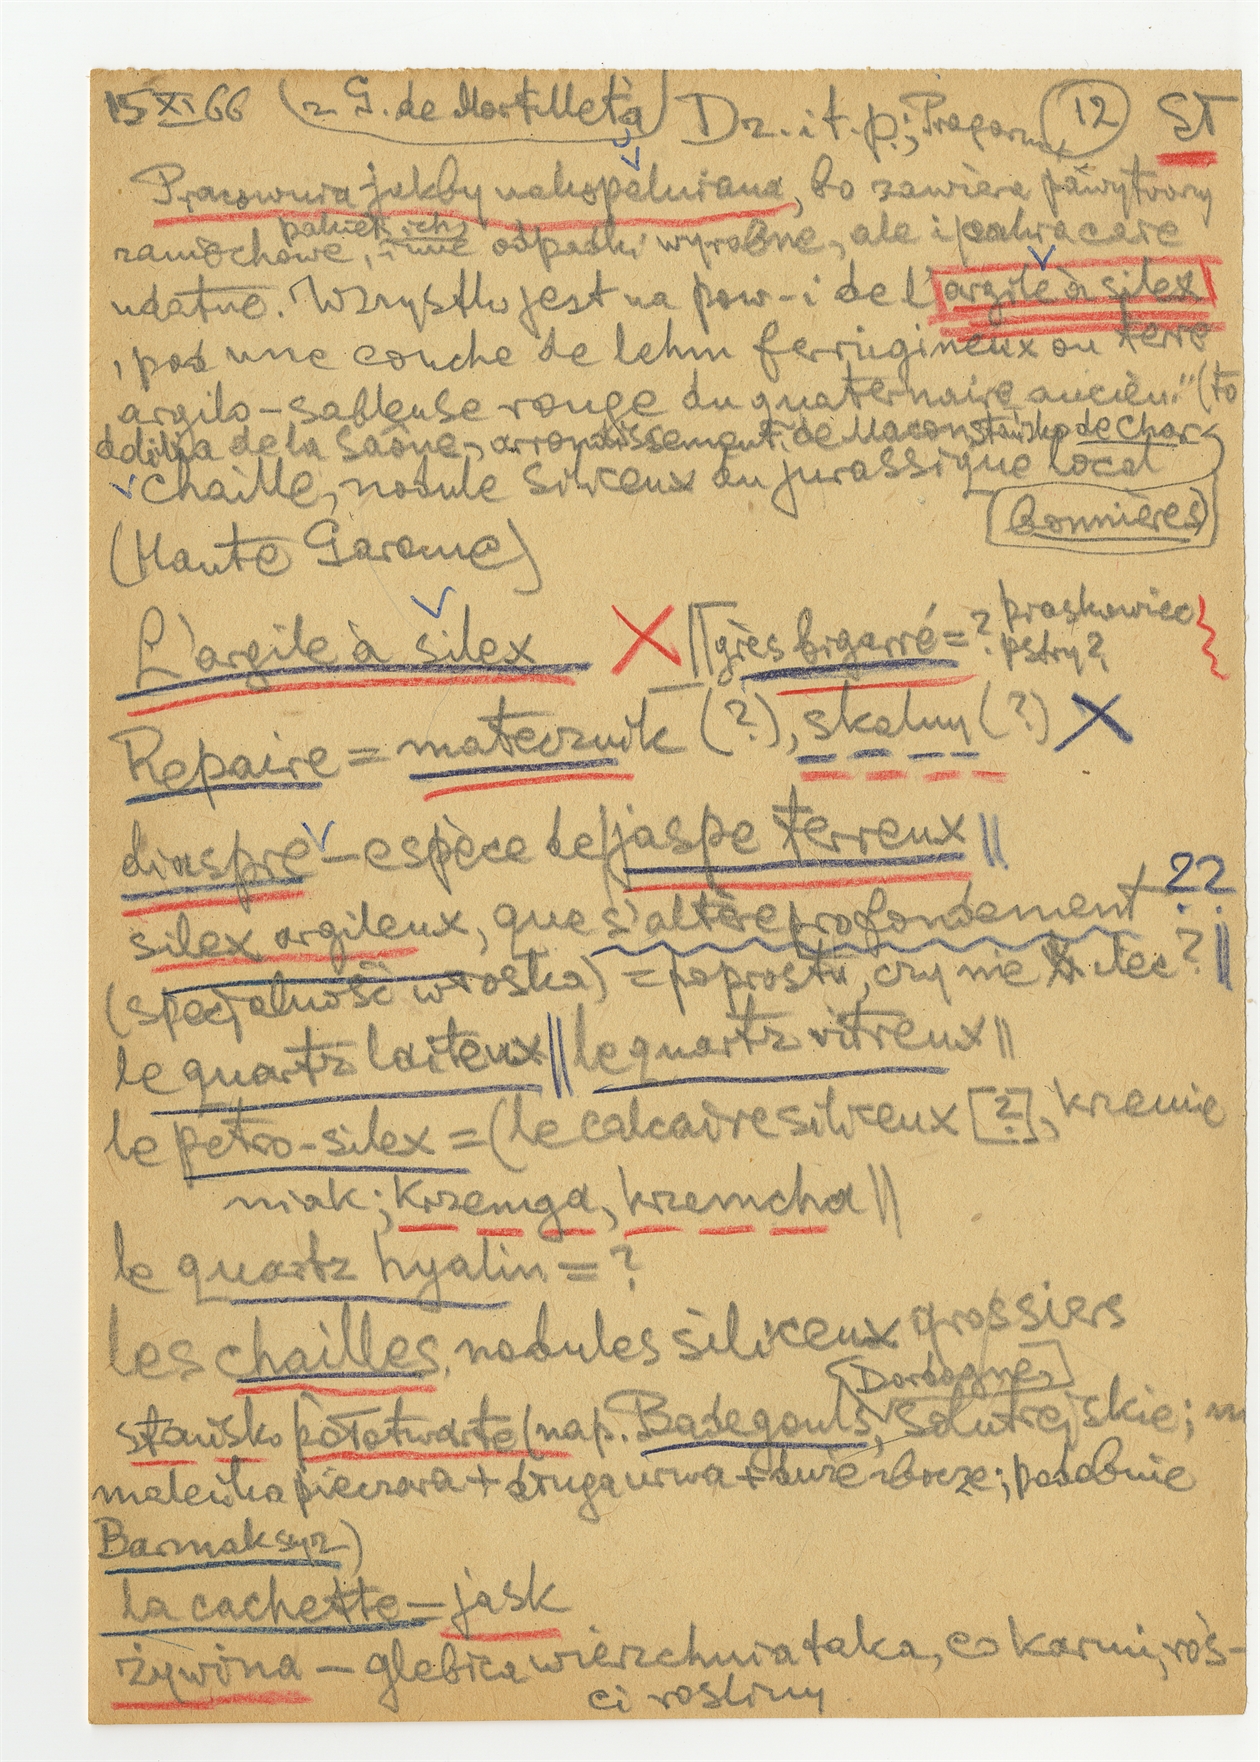 15 XI 66 (z G. de Mortilleta) Dz. i t. p.; 12 ST
Pracownia jakby nakopalniana, bo zawiera
zaniechowe, inne odpadki wyrobne, ale i
udatne. Wszystko jest na pow-i de l'argile à silex
, pod une couche de lehm ferrugineux ou terre
argilo-sableuse rouge du quaternaire ancien." (to
de la Saône, arrondissement de Macon stańsko de Char-
chaille, nodule siliceux du jurassique local
bonnières)
(Haute Garonne)
L'argile à silex X || grès bigarré = ? piaskowiec
pstry?
Repaire = matecznik (?), skalny (?) X
diaspre – espèce de jaspe terreux ||
silex argileux, que s'altère profondement ??
(specjalność wioska) = poprostu, czy nie ilec? ||
le quartz laiteux || le quartz vitreux ||
le petro-silex = (le calcaire siliceux [?], krzemie
niak; krzemga, krzemcha ||
le quartz hyalin = ?
les chailles, nodules siliceux grossiers
[Dordogne]
stańsko półotwarte (nap. Badegouls, solutrejskie;
maleńka pieczara + długa urwa + duże zbocze; podobnie
Barmaksyz)
la cachette = jask
żywina – glebica wierzchnia taka, co karmi, roś-
ci rośliny